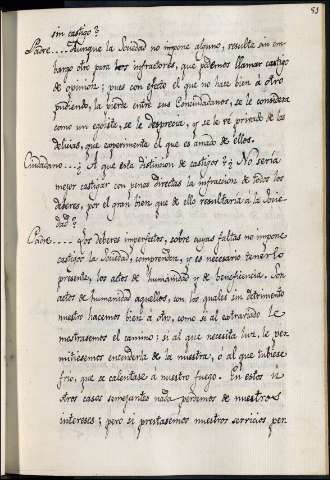 51
sin castigo?
Padre.... Aunque la Sociedad no impone alguno, resulta sin em-
bargo otro para los infractores, que podemos llamar castigo
de opinion; pues con efecto el que no hace bien á otro
pudiendo, la pierde entre sus Conciudadanos, se le considera
como un egoista, se le desprecia, y se le ve privado de las
delicias, que experimenta el que es amado de ellos.
Ciudadano.... ¿A que esta distincion de castigos? ¿No seria
mejor castigar con penas directas la infraccion de todos los
deberes, por el gran bien que de ello resultaria á la Socie-
dad?
Padre.... Los deberes imperfectos, sobre cuyas faltas no impone
castigos la Sociedad, comprenden, y es necesario tenerlo
presente, los actos de humanidad y de beneficencia. Son
actos de humanidad aquellos, con los quales sin detrimento
nuestro hacemos bien á otro, como si al extraviado le
mostrasemos el camino; si al que necesita luz, le per
mitiesemos encenderla de la nuestra, o al que tubiese
frio, que se calentase á nuestro fuego. En estos ú
otros casos semejantes nada perdemos de nuestros
intereses; pero si prestasemos nuestros servicios per